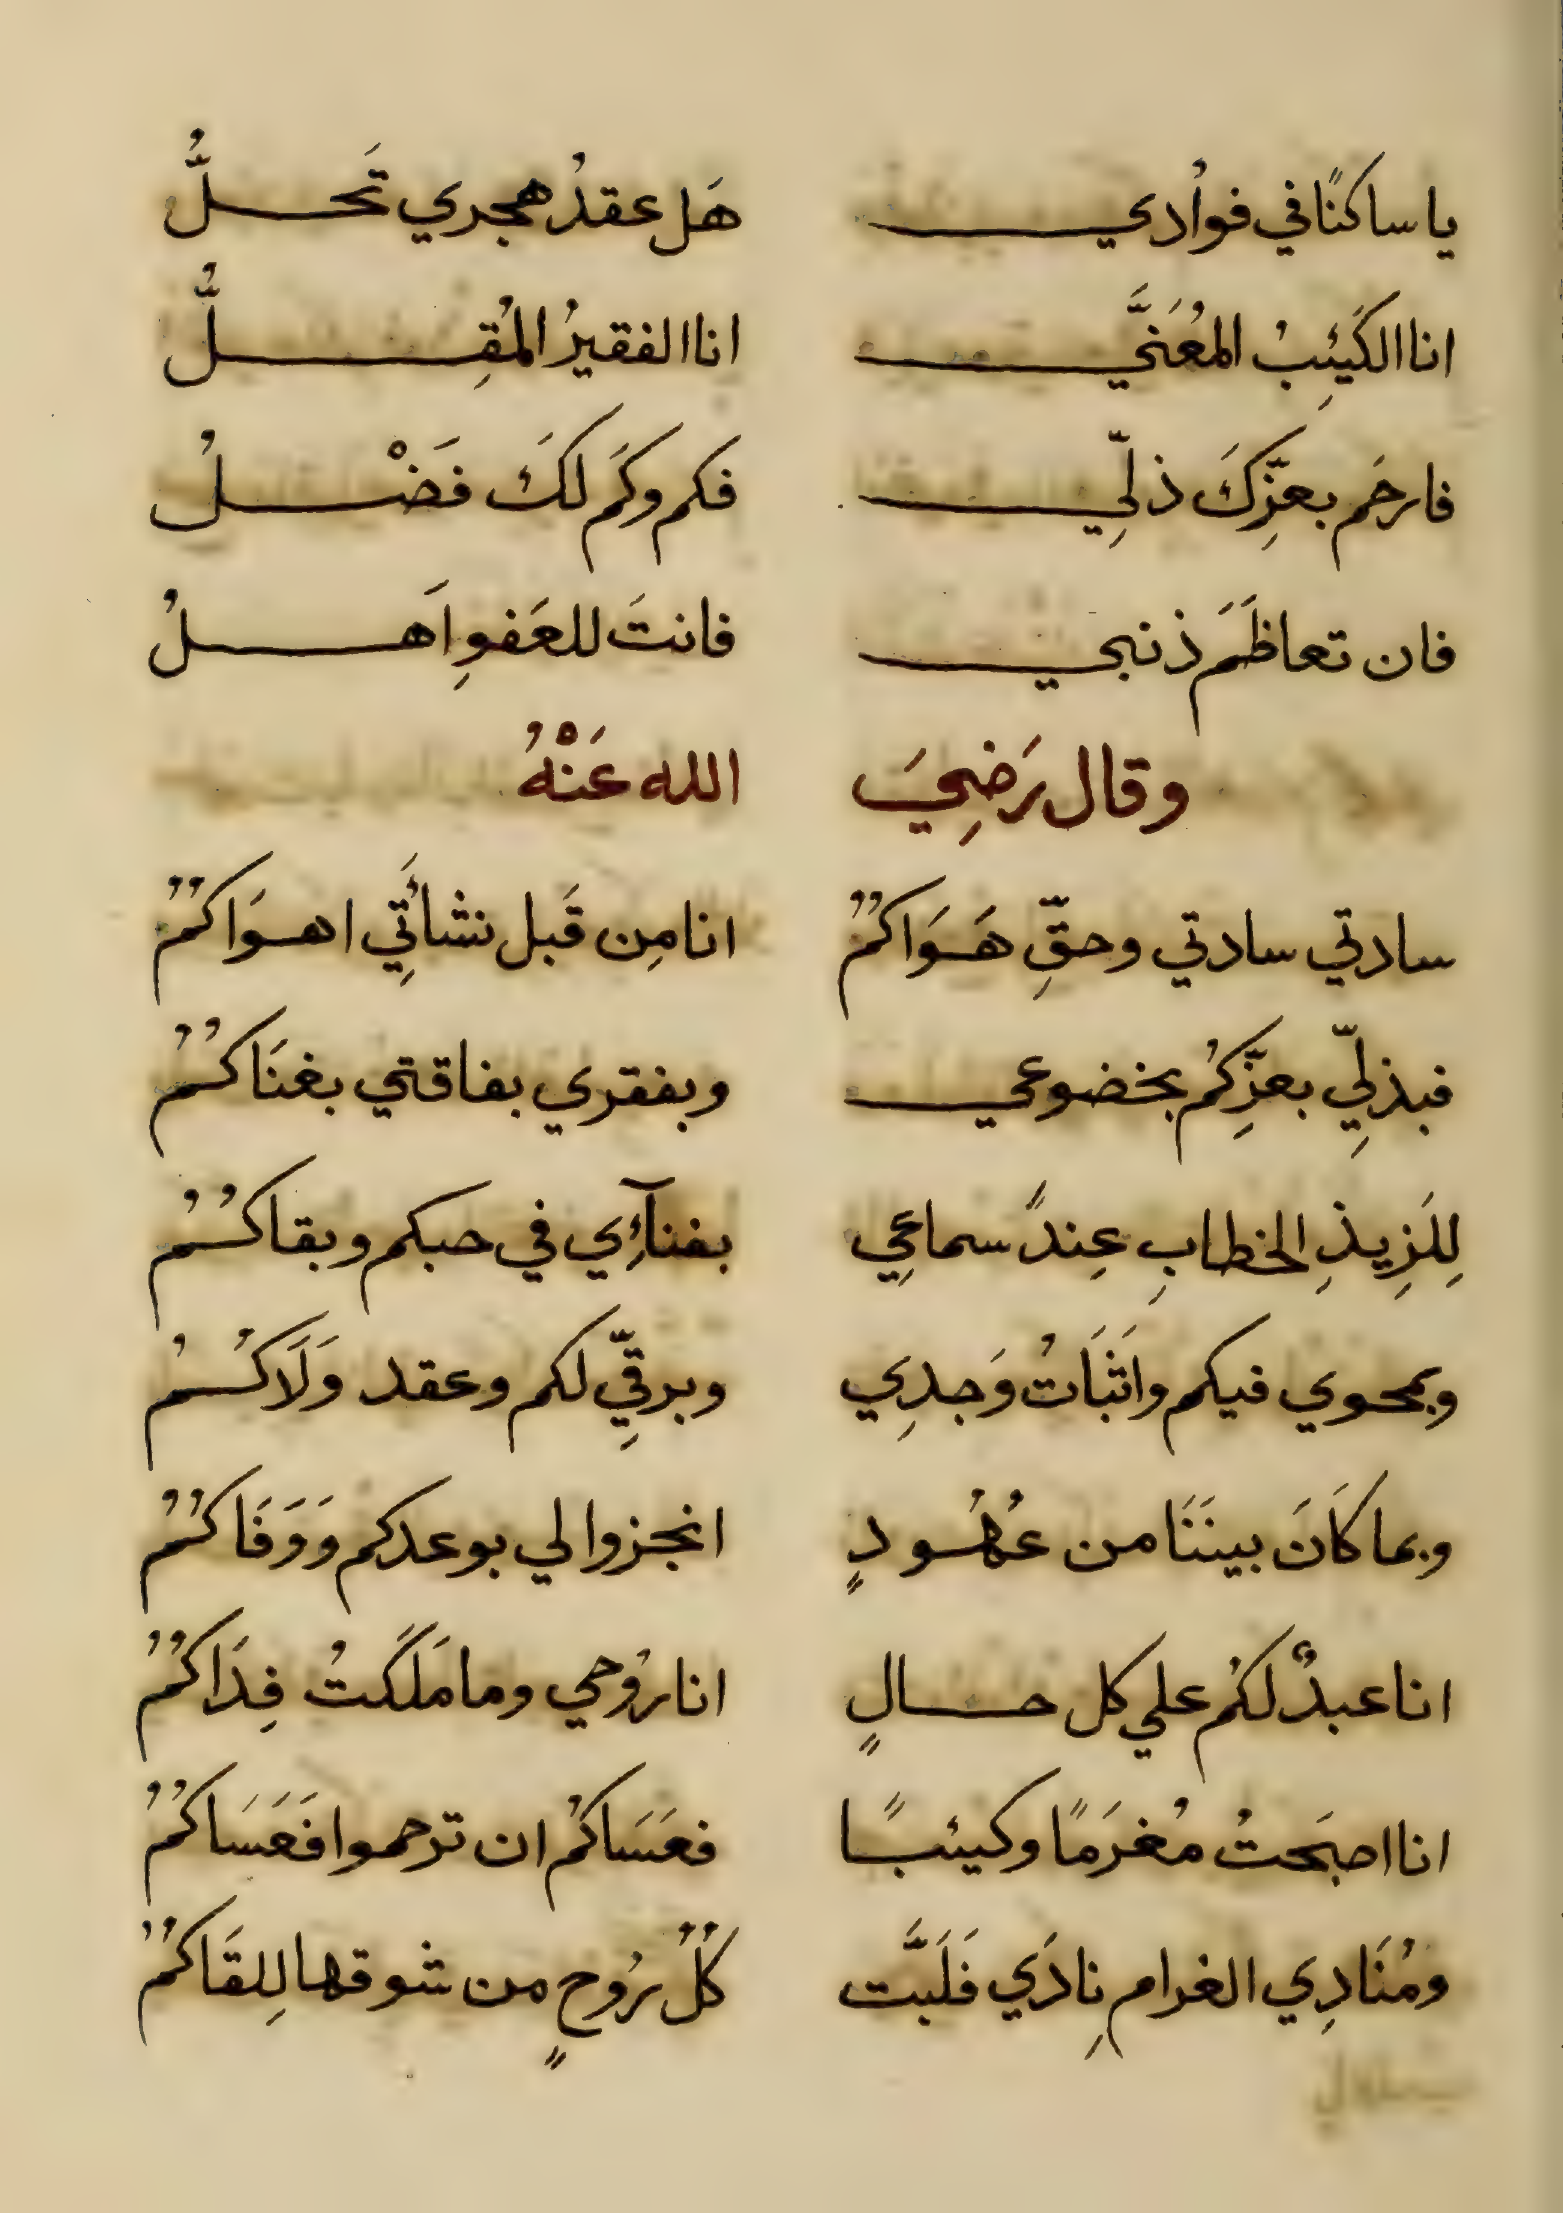 يا ساكنًا في فوادي هَل عقدُ هجري تَحلُّ
انا الكَئِيبُ المعُنَيَّ انا الفقيرُ المُقِلُّ
فارحَم بعزِّكَ ذلّيِ فكم وكَم لكَ فَضْلُ
فان تعاظَمَ ذنبي فانتَ للعَفوِ اَهلُ
وقال رَضِيَ الله عَنْهُ
سادتي سادتي وحقِّ هَوَاكُمُ انا مِن قَبل نشأَتِي اهوَاكُمُ
فبذلّيِ بعزِّكُم بخضوعي وبفقري بفاقتي بغنَاكُمُ
لِلَزِيذِ الخطابِ عِندَ سماعِي بفنآئِي في حبكم وبقاكُمُ
وبمحوي فيكم واثبَاتُ وَجدِي وبرقِّي لكم وعقد وَلَاكُمُ
وبما كَانَ بينَنَا من عُهُودٍ انجزوا لي بوعدكم وَوَفَاكُمُ
انا عبدٌ لكُم علي كل حالٍ انا رُوحي وما مَلَكَتُ فِدَاكُمُ
انا اصبَحتُ مُغرَمًا وكئيبًا فعَسَاكُم ان ترحموا فَعَسَاكُمُ
ومُنَادِي الغرامِ نادَي فَلَبَّت كُلُّ رُوحٍ من شوقها لِلقَاكُمُ